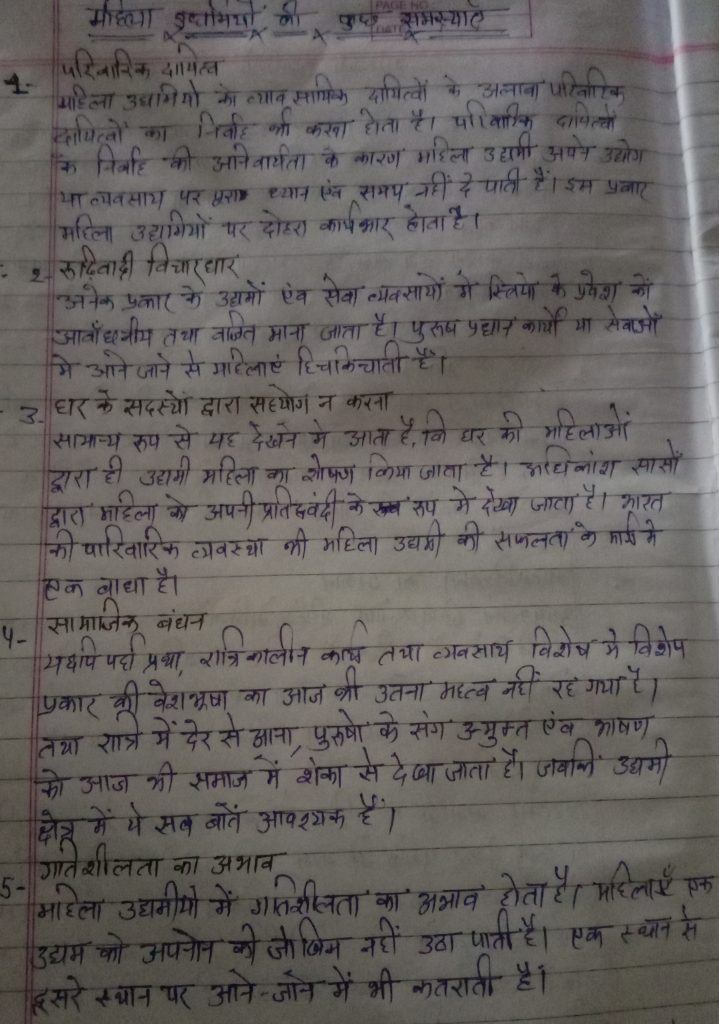 महिला उद्यमियों की कुछ समस्याएँ
PAGE NO.
DATE
1- परिवारिक दायित्व
महिला उद्यमियो को व्यावसायिक दायित्वों के अलावा परिवारिक
दायित्वों का निर्वाह भी करना होता है। परिवारिक दायित्वों
के निर्वाह की अनिवार्यता के कारण महिला उद्यमी अपने उद्योग
या व्यवसाय पर पूरा ध्यान एंव समय नहीं दे पाती हैं। इस प्रकार
महिला उद्यमियों पर दोहरा कार्यभार होता है।
2- रूढ़िवादी विचारधार
अनेक प्रकार के उद्यमों एंव सेवा व्यवसायों में स्त्रियो के प्रवेश को
आवांछनीय तथा वर्जित माना जाता है। पुरुष प्रधान कार्यों या सेवाओं
मे आने जाने से महिलाएं हिचकिचाती हैं।
3- घर के सदस्यों द्वारा सहयोग न करना
सामान्य रूप से यह देखने मे आता है, कि घर की महिलाओं
द्वारा ही उद्यमी महिला का शोषण किया जाता है। अधिकांश सासों
द्वारा महिला को अपनी प्रतिद्वंदी के रूप मे देखा जाता है। भारत
की पारिवारिक व्यवस्था भी महिला उद्यमी की सफलता के मार्ग मे
एक बाधा है।
4- सामाजिक बंधन
यद्यपि पर्दा प्रथा, रात्रिकालीन कार्य तथा व्यवसाय विशेष मे विशेष
प्रकार की वेशभूषा का आज भी उतना महत्व नहीं रह गया है।
तथा रात्रि में देर से आना, पुरुषो के संग उन्मुक्त एंव भाषण
को आज भी समाज में शंका से देखा जाता है। जबकि उद्यमी
क्षेत्र में ये सब बातें आवश्यक हैं।
5- गतिशीलता का अभाव
महिला उद्यमीयो में गतिशीलता का अभाव होता है। महिलाएँ एक
उद्यम को अपनाने की जोखिम नहीं उठा पाती है। एक स्थान से
दूसरे स्थान पर आने-जाने में भी कतराती हैं।